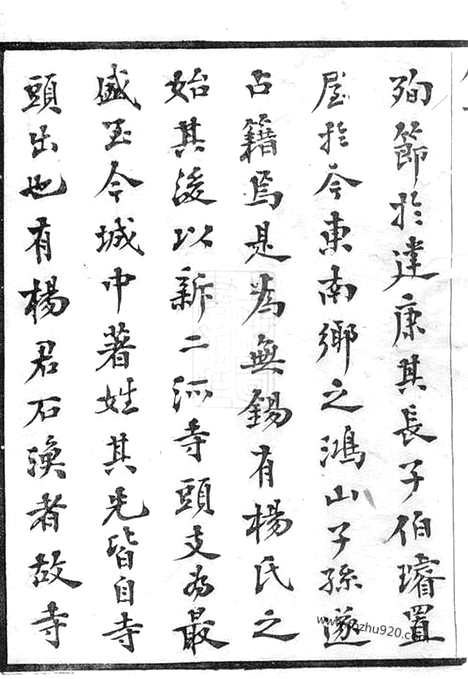 殉節於建康其長子伯璿置
屋於今東南鄉之鴻山子孫遂
占籍焉是為無錫有楊氏之
始其後以新二派寺頭支為最
盛至今城中著姓其先皆自寺
頭出也有楊君石渙者故寺
www.zhu920.com